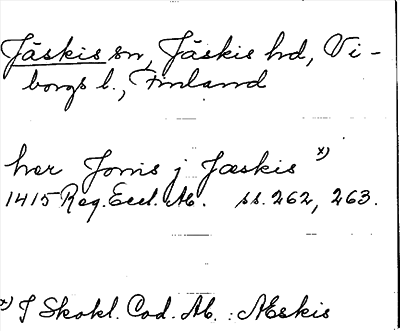 Jäskis sn, Jäskis hd, Vi-
borgs l., Finland
her Jonis j Jæskis x)
1415 Reg. Eccl. Ab. ss. 262, 263.
x) I Skokl. Cod. Ab. : Æskis